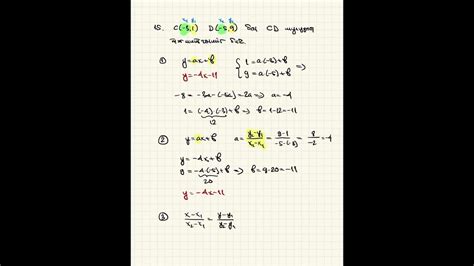 15. C(-3,1) D(-5,9) бол CD шулууны
тэгшитгэлийг бич.
① y=ax+b { 1=a(-3)+b
y=-4x-11 9=a(-5)+b
-8 = -3a-(-5a) ⇒ a=-4
1=(-4)·(-3)+b ⇒ b=1-12=-11
12
② y=ax+b a= y₂-y₁/x₂-x₁ = 9-1/-5-(-3) = 8/-2 = -4
y=-4x+b
9=-4·(-5)+b ⇒ b=9-20=-11
20
y=-4x-11
③ x-x₁/x₂-x₁ = y-y₁/y₂-y₁